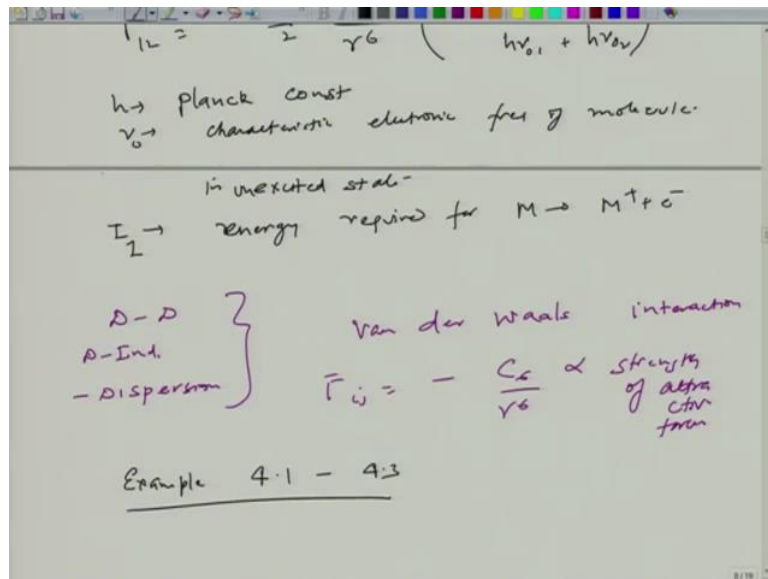 Γ₁₂ = 2 r⁶ ( hν₀₁ + hν₀₂ )
h → Planck const
ν₀ → characteristic elutronic freq of molecule.
in unexcited state
I → energy required for M → M⁺ + e⁻
1
D - D
D - Ind.
- Dispersion
van der waals interaction
Γ̄ij = - C₆ / r⁶ ∝ strength
of attra
ctiv
forces
Example 4.1 - 4.3
8/19